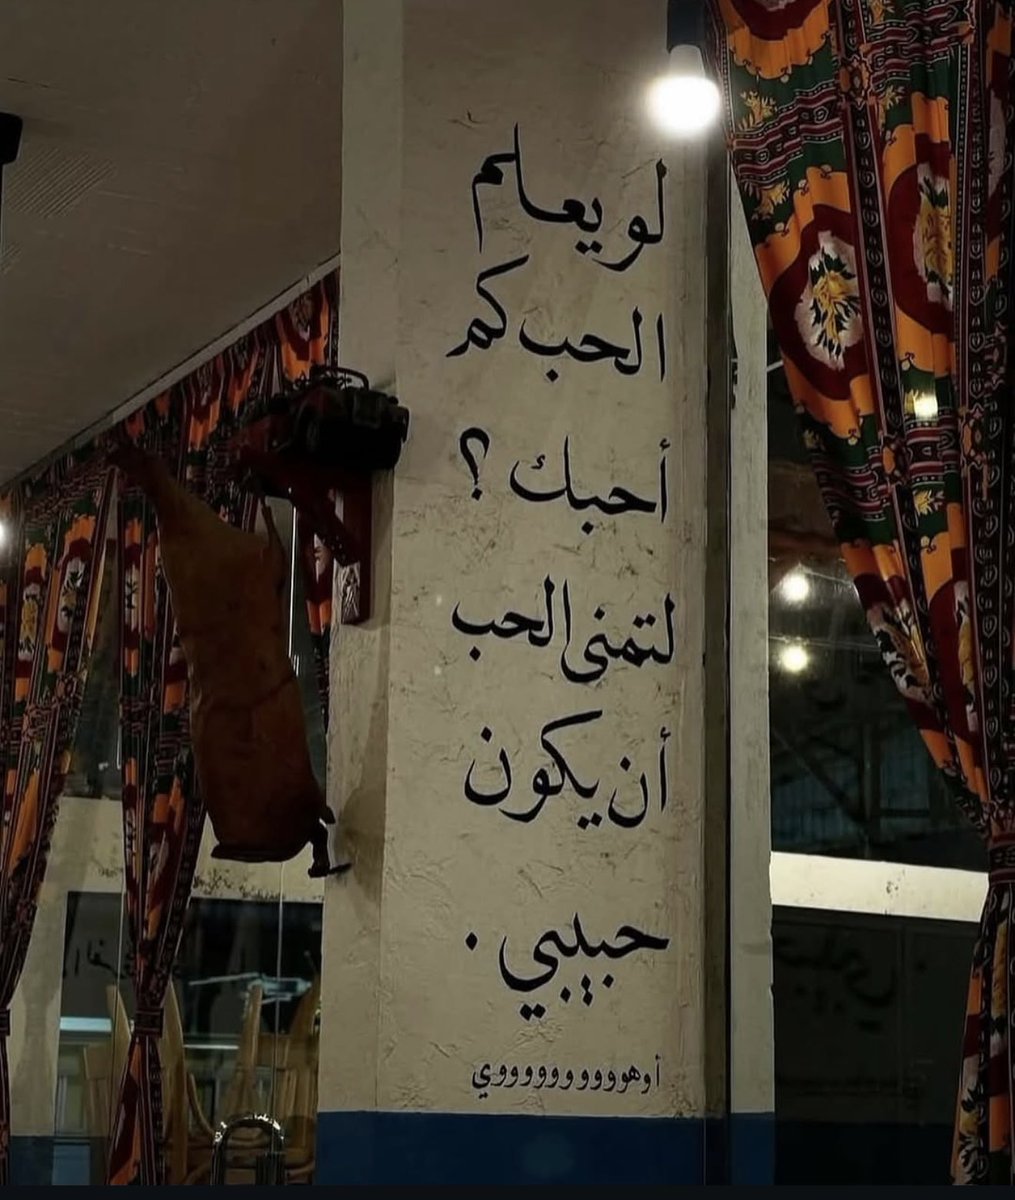 لو يعلم
الحب كم
أحبك ؟
لتمنى الحب
أن يكون
حبيبي .
أوهووووووووووي